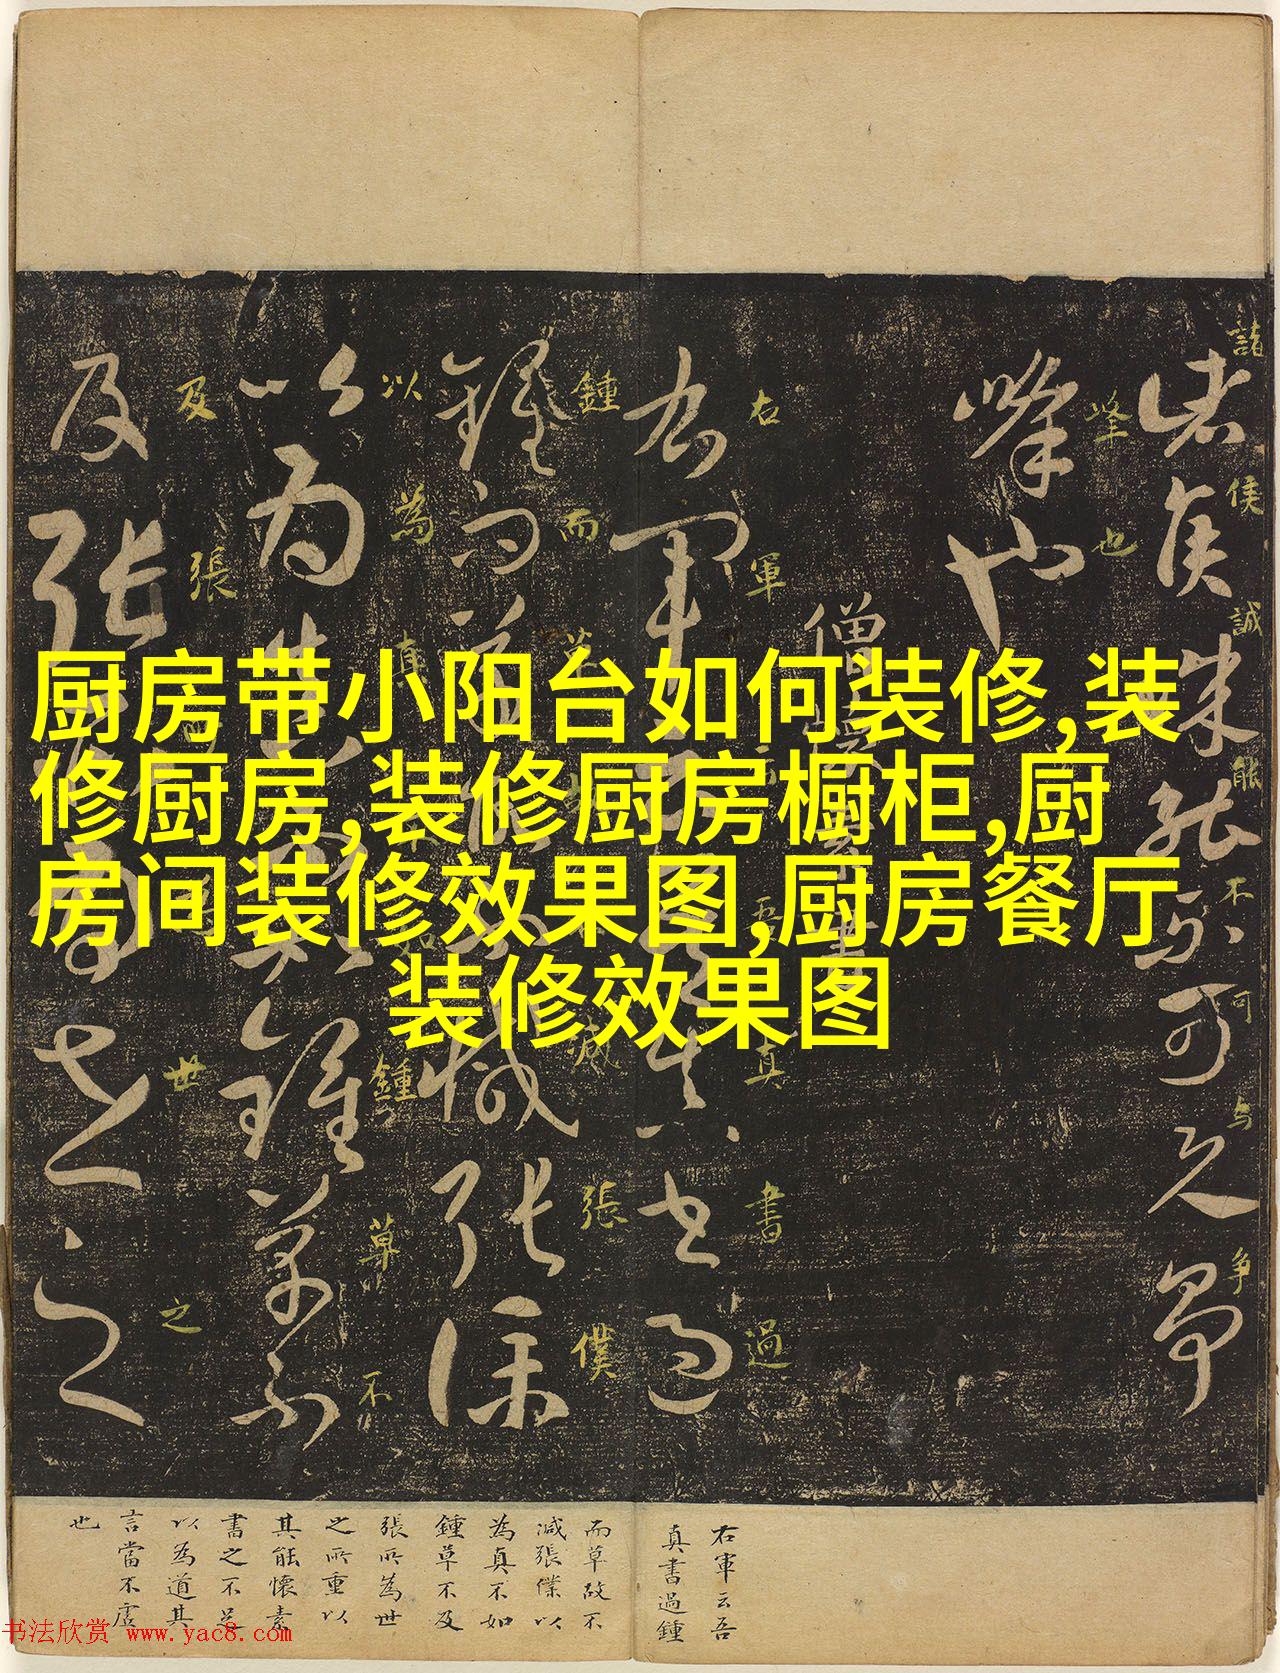 厨房带小阳台如何装修,装
修厨房,装修厨房橱柜,厨
房间装修效果图,厨房餐厅
装修效果图
諸侯誠能不可与争
峰也
右軍
真書過
鍾而草
減張僕
以為真
如鍾草不
及張
世之
右軍云吾
真書過鍾
而草故不
減張僕以
為真不如
鍾草不及
張所為世
之所重以
其能懷素
書之不足
以為道其
言當不虛
也
书法欣赏 www.yac8.com